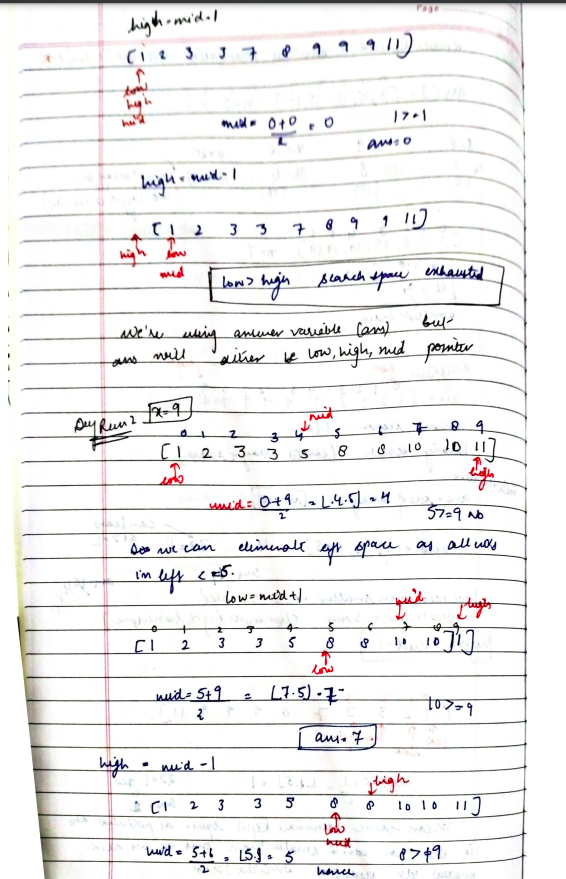 Page
high = mid - 1
[1 2 3 3 7 8 9 9 9 11]
low
high
mid
mid = 0+0/2 = 0 1>=1
ans=0
high = mid - 1
[1 2 3 3 7 8 9 9 11]
high low
mid
low > high search space exhausted
we're using answer variable (ans) but
ans will either be low, high, mid pointer
Dry Run 2 x=9
mid
0 1 2 3 4 5 6 7 8 9
[1 2 3 3 5 8 8 10 10 11]
low high
mid = 0+9/2 = ⌊4.5⌋ = 4
5>=9 no
we can eliminate left space as all nos
in left <=5.
low = mid+1
mid high
0 1 2 3 4 5 6 7 8 9
[1 2 3 3 5 8 8 10 10 11]
low
mid = 5+9/2 = ⌊7.5⌋ = 7
10>=9
ans = 7
high = mid - 1
high
[1 2 3 3 5 8 8 10 10 11]
low
mid
mid = 5+6/2 = ⌊5.5⌋ = 5 8>≠9
hence